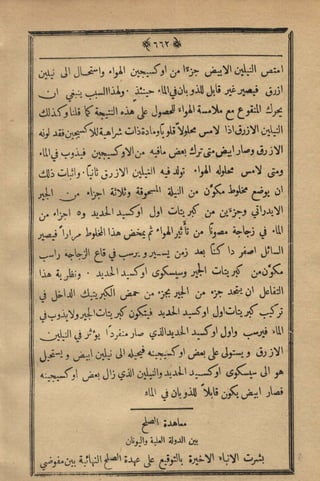 ﴿٦٦٢﴾
امتص النيلين الابيض جزءًا من اوكسيجين الهواء واستحال الى نيلين
ازرق فيصير غير قابل للذوبان في الماء حينئذٍ ٠ ولهذا السبب ينبغي ان
يحرك المنقوع مع ملامسة الهواء للحصول على هذه النتيجة كما قلنا وكذلك
النيلين الازرق اذا لامس محلولاً قلويًا ومادة ذات شراهية للاكسيجين فقد لونه
الازرق وصار ابيض متى ترك بعض مافيه من الاوكسيجين فيذوب في الماء
ومتى لامس محلوله الهواء تولد فيه النيلين الازرق ثانيًا ٠ واثبات ذلك
ان يوضع مخلوط مكوّن من النيلة المسحوقة وثلاثة اجزاء من الجير
الايدراتي وجزءين من كبريتات اول اوكسيد الحديد و٥٥ اجزاء من
الماء في زجاجة مصونًا من تأثير الهواء ثم يمخض هذا المخلوط مرارًا فيصير
السائل اصفر داكنًا بعد زمن يسير ويرسب في قاع الزجاجة راسب
مكوّن من كبريتات الجير وسيسكوي اوكسيد الحديد ٠ ونظرية هذا
التفاعل ان يتحد جزء من الجير بجزء من حمض الكبريتيك الداخل في
تركيب كبريتات اول اوكسيد الحديد فيتكون كبريتات الجير ولايذوب في
الماء فيرسب واول اوكسيد الحديد الذي صار منفردًا يؤثر في النيلين
الازرق ويستولى على بعض اوكسيجينه فيحيله الى نيلين ابيض ويستحيل
هو الى سيسكوي اوكسيد الحديد والنيلين الذي زال بعض اوكسيجينه
فصار ابيض يكون قابلاً للذوبان في الماء
معاهدة الصلح
بين الدولة العلية واليونان
بشرت الانباء الاخيرة بالتوقيع على عهدة الصلح النهائية بين مفوضي